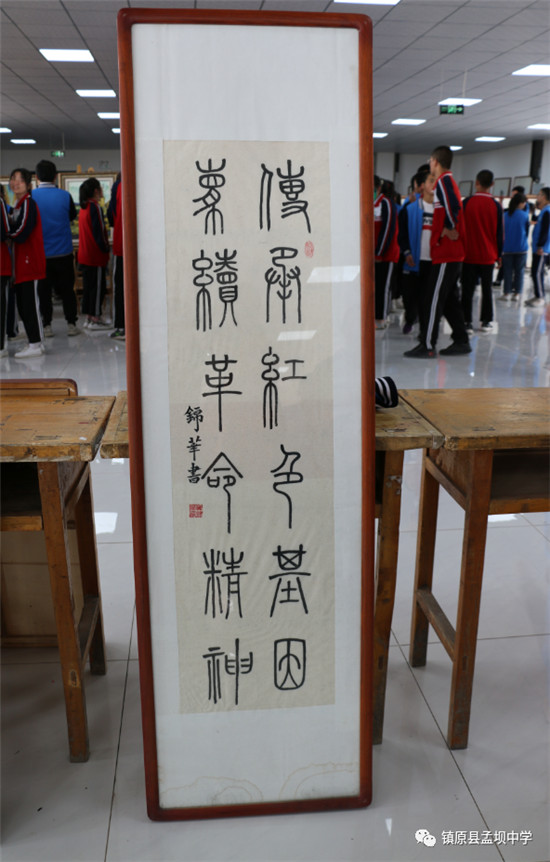 傳承紅色基因
賡續革命精神
錦華書
镇原县孟坝中学